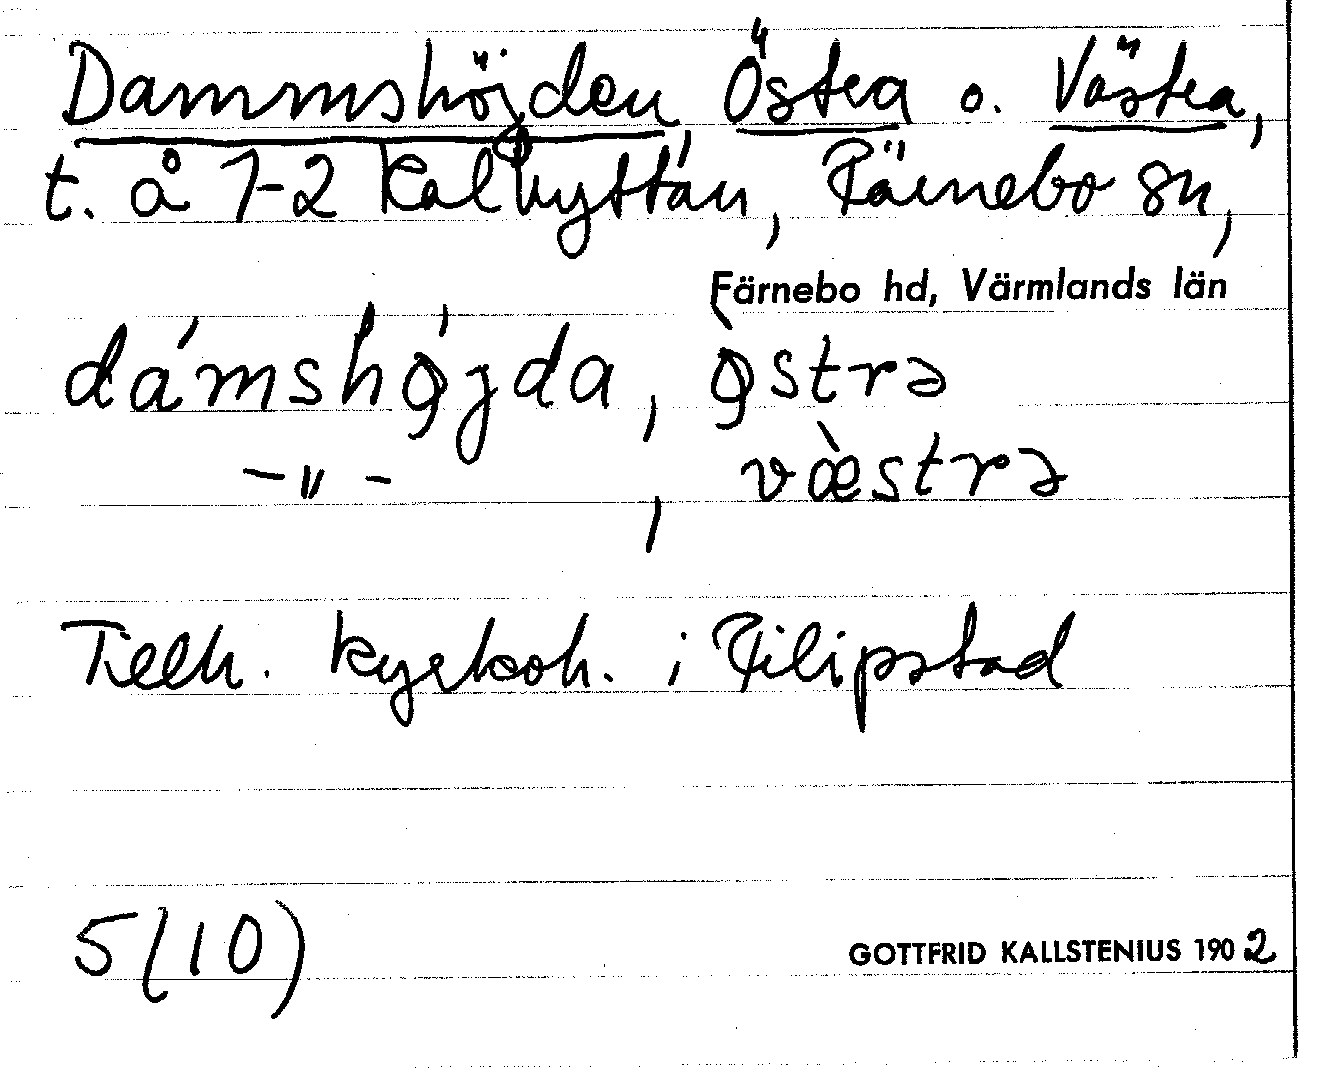 Dammshöjden, Östra o. Västra,
t. å 1-2 Kalhyttan, Färnebo sn,
Färnebo hd, Värmlands län
dámshǫ́jda, ǫ̀strə
-"- , væ̀strə
Tillh. kyrkoh. i Filipstad
5(10)
GOTTFRID KALLSTENIUS 1902